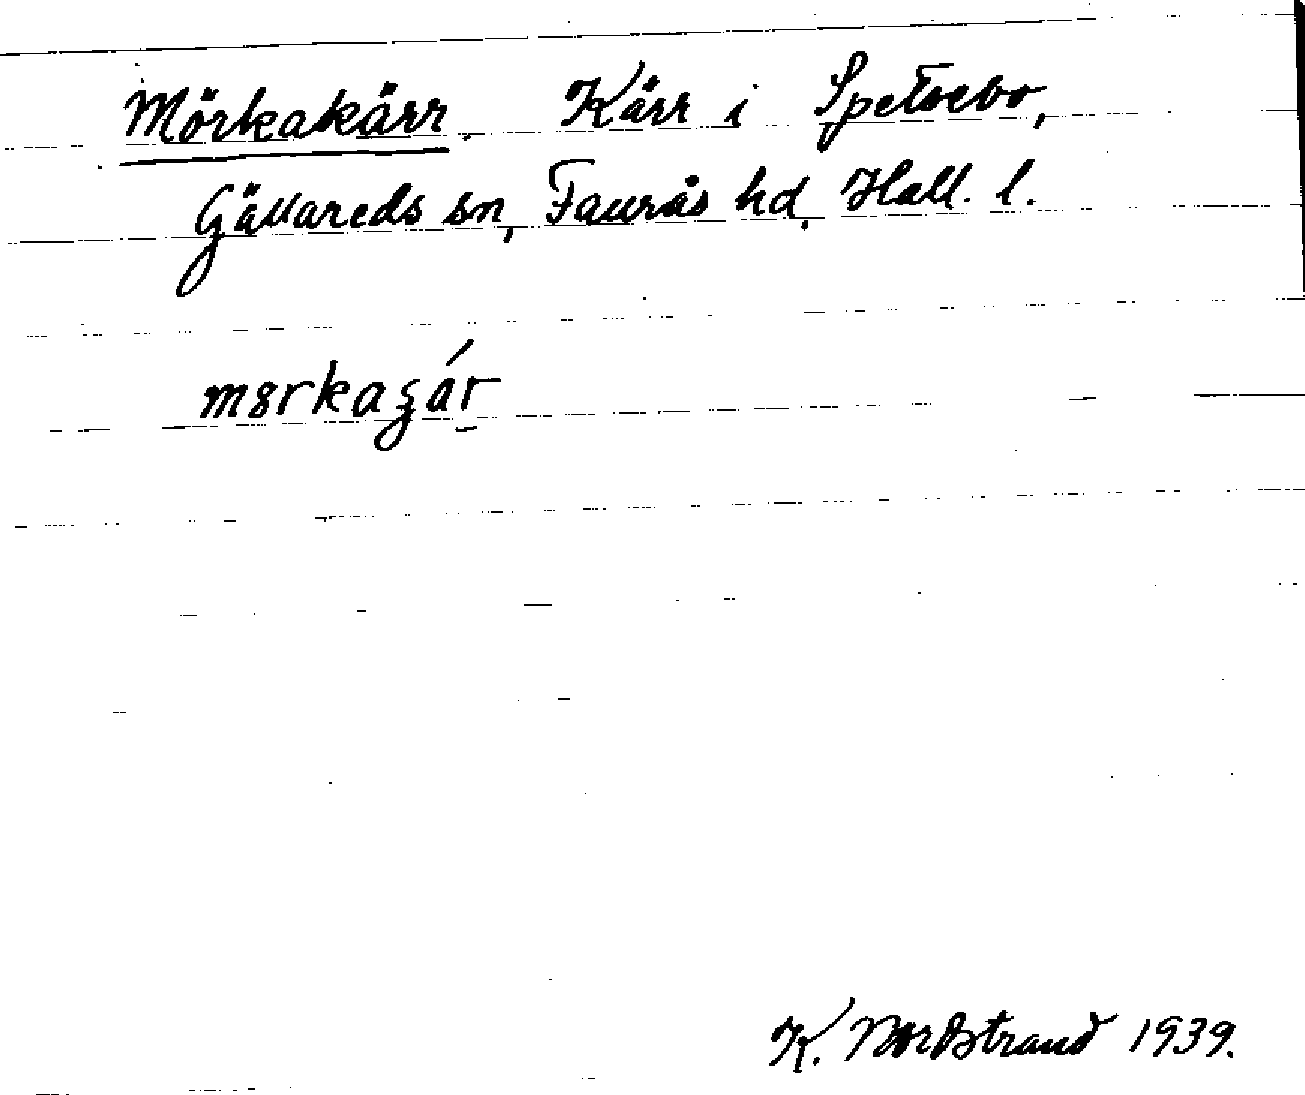 Mörkakärr. Kärr i Spetsebo,
Gällareds sn, Faurås hd, Hall. l.
mɞrkaʒár
K. Nordstrand 1939.